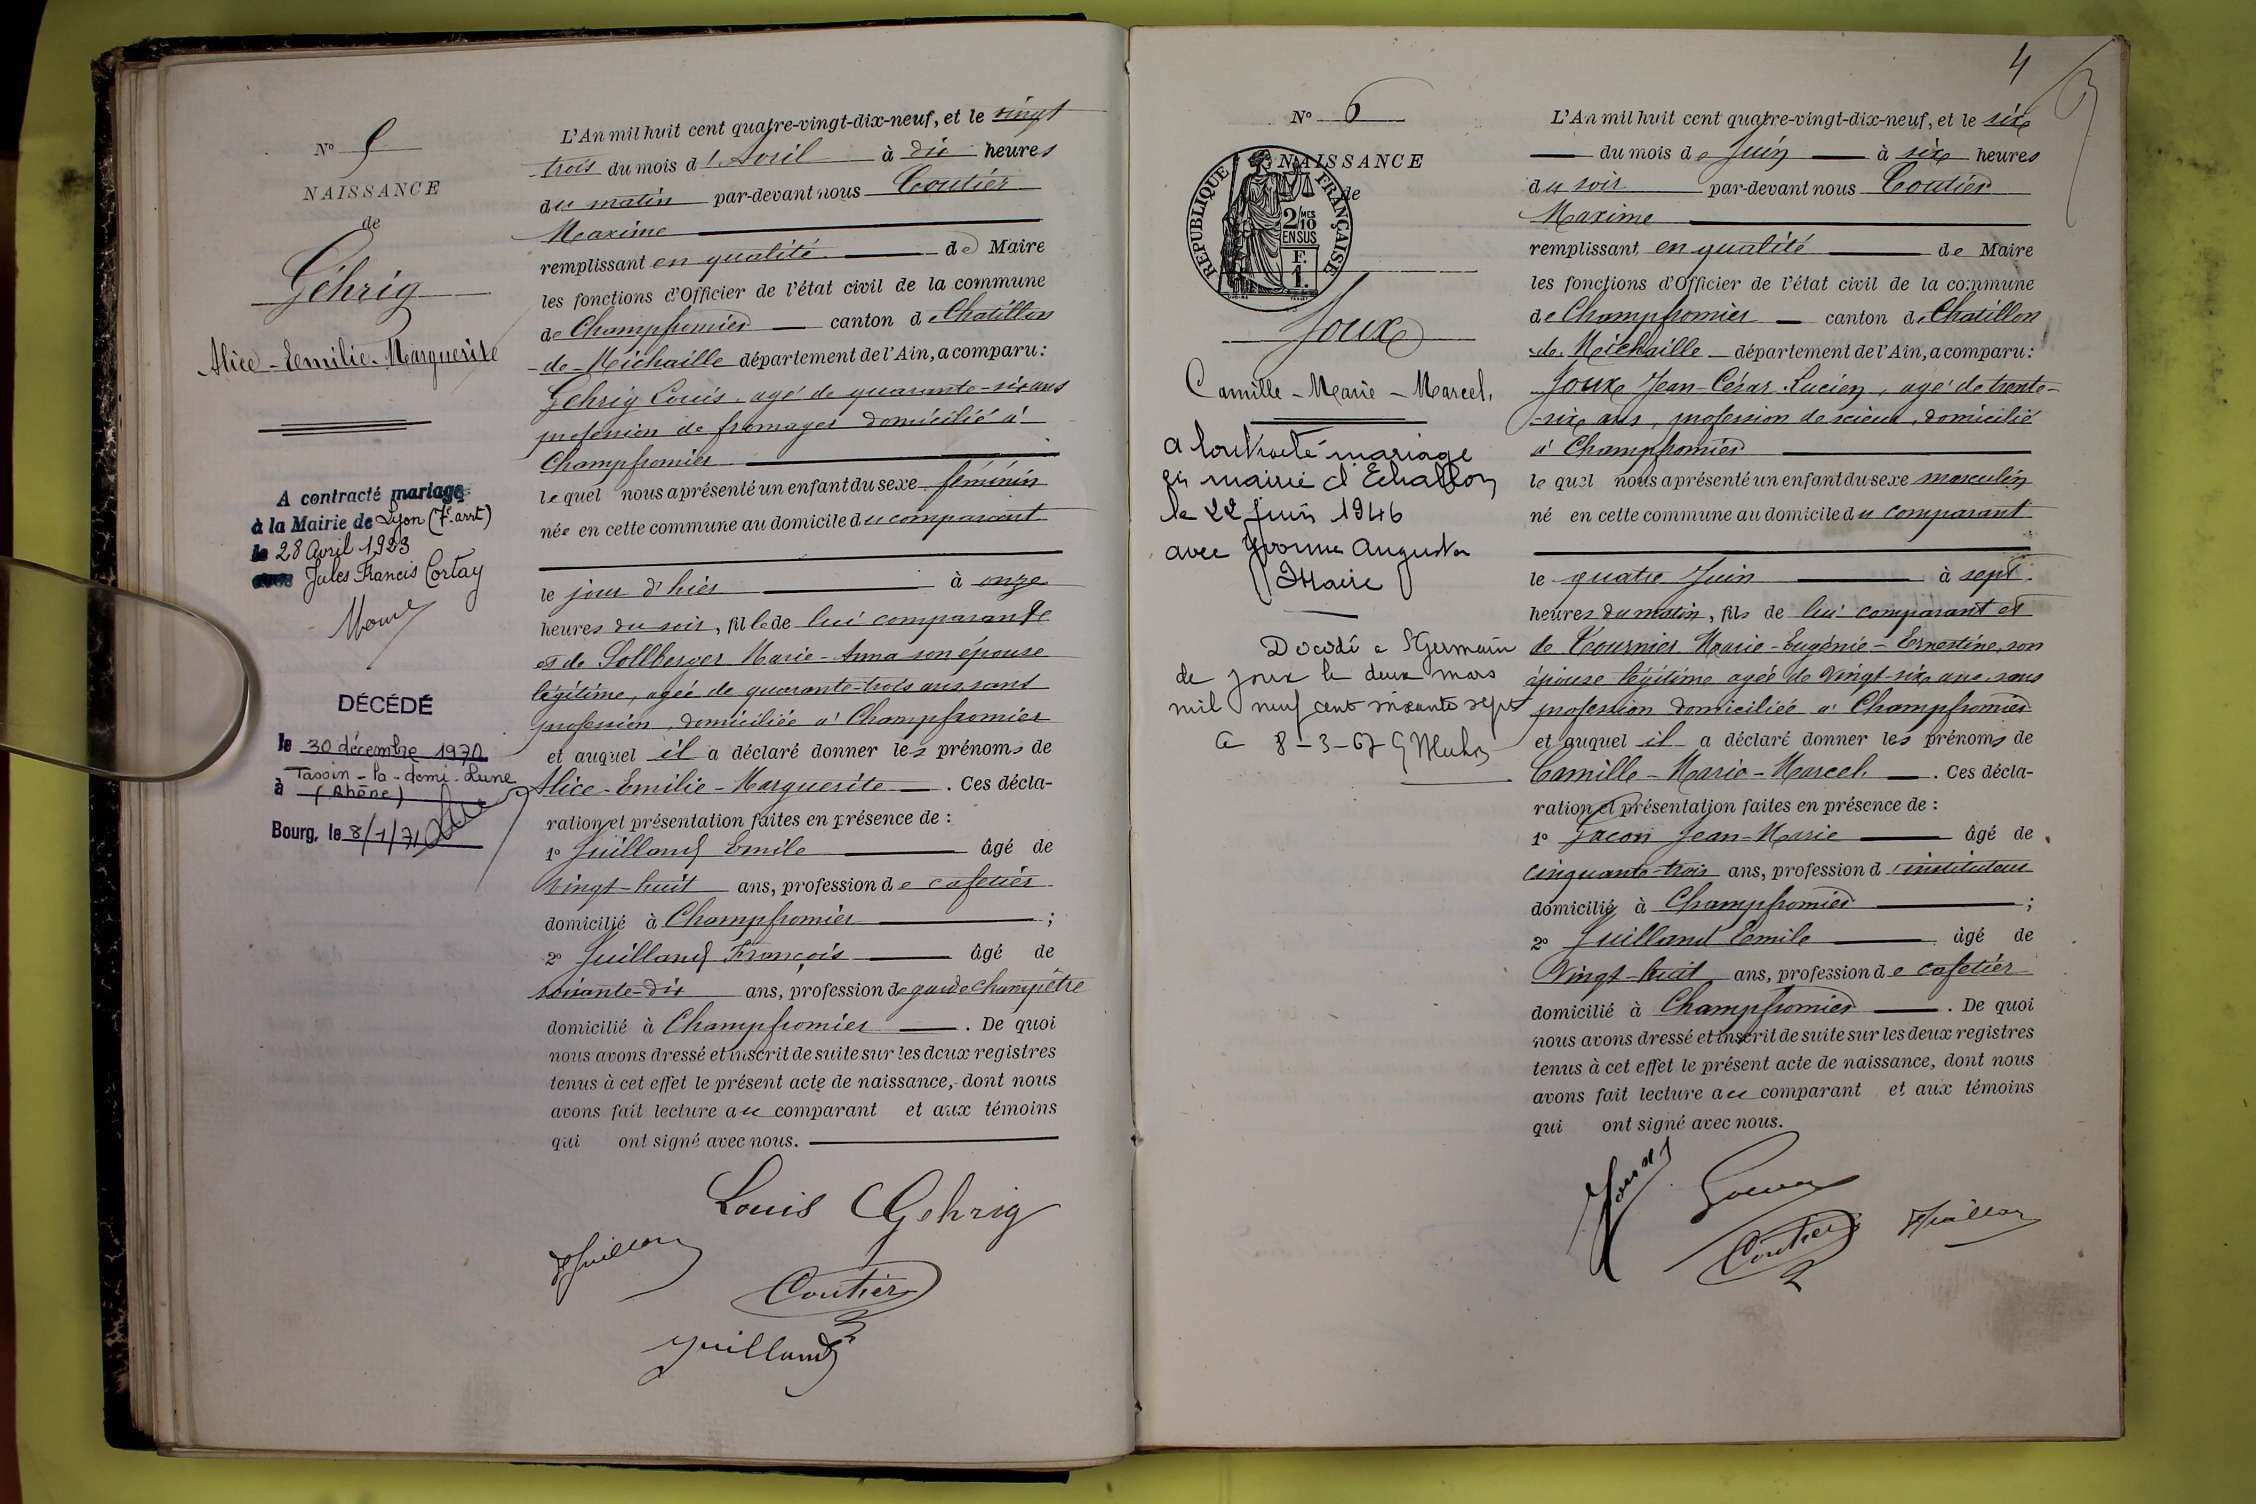 N° 5
NAISSANCE
de
Gehrig
Alice-Emilie-Marguerite
A contracté mariage
à la Mairie de Lyon (7e arrt)
le 28 Avril 1923
avec Jules Francis Cortay
DÉCÉDÉ
le 30 décembre 1970
à Tassin-la-demi-Lune
(Rhône)
Bourg, le 8/1/71
L'An mil huit cent quatre-vingt-dix-neuf, et le vingt
trois du mois d'Avril à dix heures
du matin par-devant nous Coutier
Maxime
remplissant en qualité de Maire
les fonctions d'Officier de l'état civil de la commune
de Champfromier canton de Chatillon
-de-Michaille département de l'Ain, a comparu:
Gehrig Louis, agé de quarante-six ans
profession de fromager domicilié à
Champfromier
lequel nous a présenté un enfant du sexe féminin
née en cette commune au domicile du comparant
le jour d'hier à onze
heures du soir, fille de lui comparant
et de Sollberger Marie-Anna son épouse
légitime, agée de quarante-trois ans, sans
profession, domiciliée à Champfromier
et auquel il a déclaré donner les prénoms de
Alice-Emilie-Marguerite. Ces décla-
ration et présentation faites en présence de :
1° Juilland Emile âgé de
vingt-huit ans, profession de cafetier
domicilié à Champfromier ;
2° Juilland François âgé de
soixante-dix ans, profession de garde champêtre
domicilié à Champfromier. De quoi
nous avons dressé et inscrit de suite sur les deux registres
tenus à cet effet le présent acte de naissance, dont nous
avons fait lecture au comparant et aux témoins
qui ont signé avec nous.
Louis Gehrig
Coutier
Juilland
4
N° 6
NAISSANCE
de
RÉPUBLIQUE FRANÇAISE
2/10 MES
EN SUS
F.
1.
Joux
Camille-Marie-Marcel.
a contracté mariage
en mairie d'Echallon
le 22 juin 1946
avec Yvonne Augusta
Décédé à St Germain
de Joux le deux mars
mil neuf cent soixante sept
8-3-67
L'An mil huit cent quatre-vingt-dix-neuf, et le six
du mois de Juin à six heures
du soir par-devant nous Coutier
Maxime
remplissant en qualité de Maire
les fonctions d'Officier de l'état civil de la commune
de Champfromier canton de Chatillon
-de-Michaille département de l'Ain, a comparu:
Joux Jean-César-Lucien, agé de trente-
six ans, profession de scieur, domicilié
à Champfromier
lequel nous a présenté un enfant du sexe masculin
né en cette commune au domicile du comparant
le quatre Juin à sept
heures du matin, fils de lui comparant et
de Tournier Marie-Eugénie-Ernestine, son
épouse légitime agée de vingt-six ans, sans
profession domiciliée à Champfromier
et auquel il a déclaré donner les prénoms de
Camille-Marie-Marcel. Ces décla-
ration et présentation faites en présence de :
1° Jacon Jean-Marie âgé de
cinquante-trois ans, profession d'instituteur
domicilié à Champfromier ;
2° Juilland Emile âgé de
vingt-huit ans, profession de cafetier
domicilié à Champfromier. De quoi
nous avons dressé et inscrit de suite sur les deux registres
tenus à cet effet le présent acte de naissance, dont nous
avons fait lecture au comparant et aux témoins
qui ont signé avec nous.
Coutier